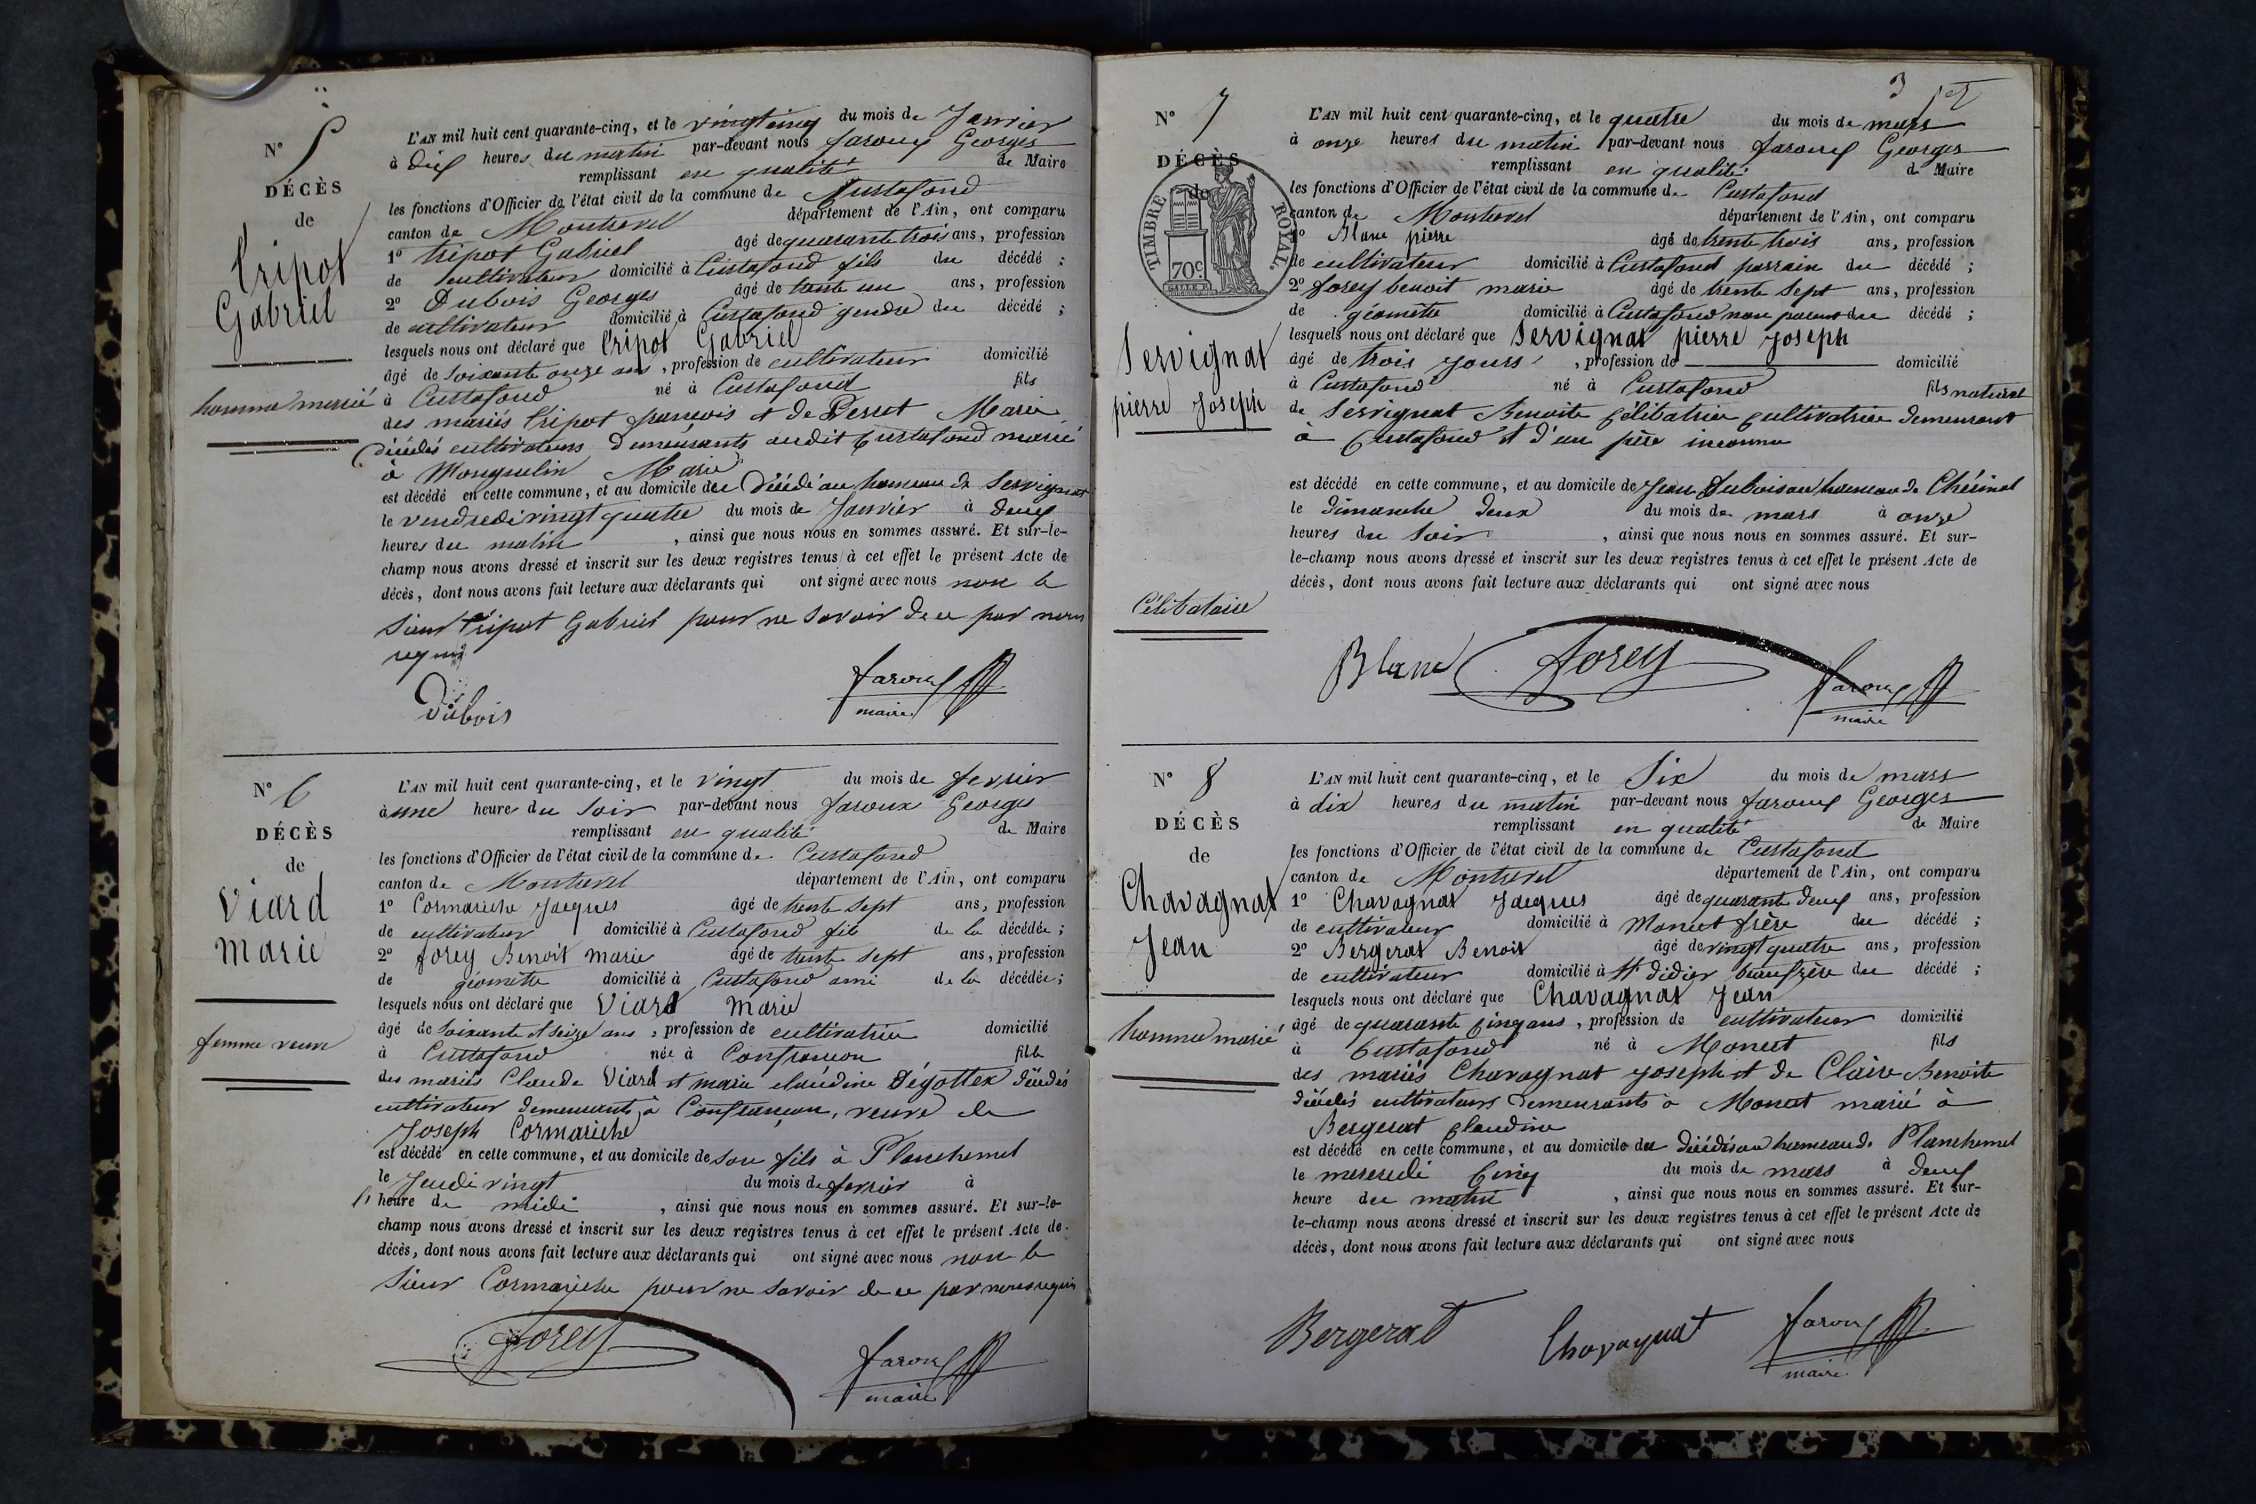 N° 5
DÉCÈS
de
Tripot
Gabriel
homme marié
L'AN mil huit cent quarante-cinq, et le vingt cinq du mois de Janvier
à dix heures du matin par-devant nous Faroux Georges
remplissant en qualité de Maire
les fonctions d'Officier de l'état civil de la commune de Curtafond
canton de Montrevel département de l'Ain, ont comparu
1° Tripot Gabriel âgé de quarante trois ans, profession
de cultivateur domicilié à Curtafond fils du décédé ;
2° Dubois Georges âgé de trente un ans, profession
de cultivateur domicilié à Curtafond gendre du décédé ;
lesquels nous ont déclaré que Tripot Gabriel
âgé de soixante onze ans, profession de cultivateur domicilié
à Curtafond né à Curtafond fils
des mariés Tripot françois et de Perret Marie
décédés cultivateurs demeurants audit Curtafond marié
à Monguelin Marie
est décédé en cette commune, et au domicile du décédé au hameau de Servignat
le vendredi vingt quatre du mois de Janvier à deux
heures du matin, ainsi que nous nous en sommes assuré. Et sur-le-
champ nous avons dressé et inscrit sur les deux registres tenus à cet effet le présent Acte de
décès, dont nous avons fait lecture aux déclarants qui ont signé avec nous non le
Sieur Tripot Gabriel pour ne savoir de ce par nous
requis
Dubois
faroux
maire
N° 6
DÉCÈS
de
Viard
marie
femme veuve
L'AN mil huit cent quarante-cinq, et le vingt du mois de fevrier
à une heure du soir par-devant nous Faroux Georges
remplissant en qualité de Maire
les fonctions d'Officier de l'état civil de la commune de Curtafond
canton de Montrevel département de l'Ain, ont comparu
1° Cormariche Jacques âgé de trente sept ans, profession
de cultivateur domicilié à Curtafond fils de la décédée ;
2° forey Benoit marie âgé de trente sept ans, profession
de géomètre domicilié à Curtafond ami de la décédée ;
lesquels nous ont déclaré que Viard Marie
âgé de soixante et seize ans, profession de cultivatrice domicilié
à Curtafond née à Confrançon fille
des mariés Claude Viard et marie claudine Dégottex décédés
cultivateur demeurants à Confrançon, veuve de
Joseph Cormariche
est décédé en cette commune, et au domicile de son fils à Planchemel
le Jeudi vingt du mois de fevrier à
heure de midi, ainsi que nous nous en sommes assuré. Et sur-le-
champ nous avons dressé et inscrit sur les deux registres tenus à cet effet le présent Acte de
décès, dont nous avons fait lecture aux déclarants qui ont signé avec nous non le
Sieur Cormariche pour ne savoir de ce par nous requis
Forey
faroux
maire
3
N° 7
DÉCÈS
de
TIMBRE ROYAL
70c.
Servignat
pierre Joseph
Célibataire
L'AN mil huit cent quarante-cinq, et le quatre du mois de mars
à onze heures du matin par-devant nous Faroux Georges
remplissant en qualité de Maire
les fonctions d'Officier de l'état civil de la commune de Curtafond
canton de Montrevel département de l'Ain, ont comparu
1° Blanc pierre âgé de trente trois ans, profession
de cultivateur domicilié à Curtafond parrain du décédé ;
2° forey benoit marie âgé de trente sept ans, profession
de géomètre domicilié à Curtafond non parent du décédé ;
lesquels nous ont déclaré que Servignat pierre Joseph
âgé de trois jours, profession de domicilié
à Curtafond né à Curtafond fils naturel
de Servignat Benoite célibatrice cultivatrice demeurant
à Curtafond et d'un père inconnu
est décédé en cette commune, et au domicile de Jean Dubois au hameau de Chérinal
le dimanche deux du mois de mars à onze
heures du soir, ainsi que nous nous en sommes assuré. Et sur-
le-champ nous avons dressé et inscrit sur les deux registres tenus à cet effet le présent Acte de
décès, dont nous avons fait lecture aux déclarants qui ont signé avec nous
Blanc
Forey
faroux
maire
N° 8
DÉCÈS
de
Chavagnat
Jean
homme marié
L'AN mil huit cent quarante-cinq, et le Six du mois de mars
à dix heures du matin par-devant nous Faroux Georges
remplissant en qualité de Maire
les fonctions d'Officier de l'état civil de la commune de Curtafond
canton de Montrevel département de l'Ain, ont comparu
1° Chavagnat Jacques âgé de quarante deux ans, profession
de cultivateur domicilié à Moncet frère du décédé ;
2° Bergerat Benoit âgé de vingt quatre ans, profession
de cultivateur domicilié à St didier beaufrère du décédé ;
lesquels nous ont déclaré que Chavagnat Jean
âgé de quarante cinq ans, profession de cultivateur domicilié
à Curtafond né à Moncet fils
des mariés Chavagnat Joseph et de Claire Benoite
décédés cultivateurs demeurants à Moncet marié à
Bergerat claudine
est décédé en cette commune, et au domicile du décédé au hameau de Planchemel
le mercredi Cinq du mois de mars à deux
heure du matin, ainsi que nous nous en sommes assuré. Et sur-
le-champ nous avons dressé et inscrit sur les deux registres tenus à cet effet le présent Acte de
décès, dont nous avons fait lecture aux déclarants qui ont signé avec nous
Bergerat
Chavagnat
faroux
maire